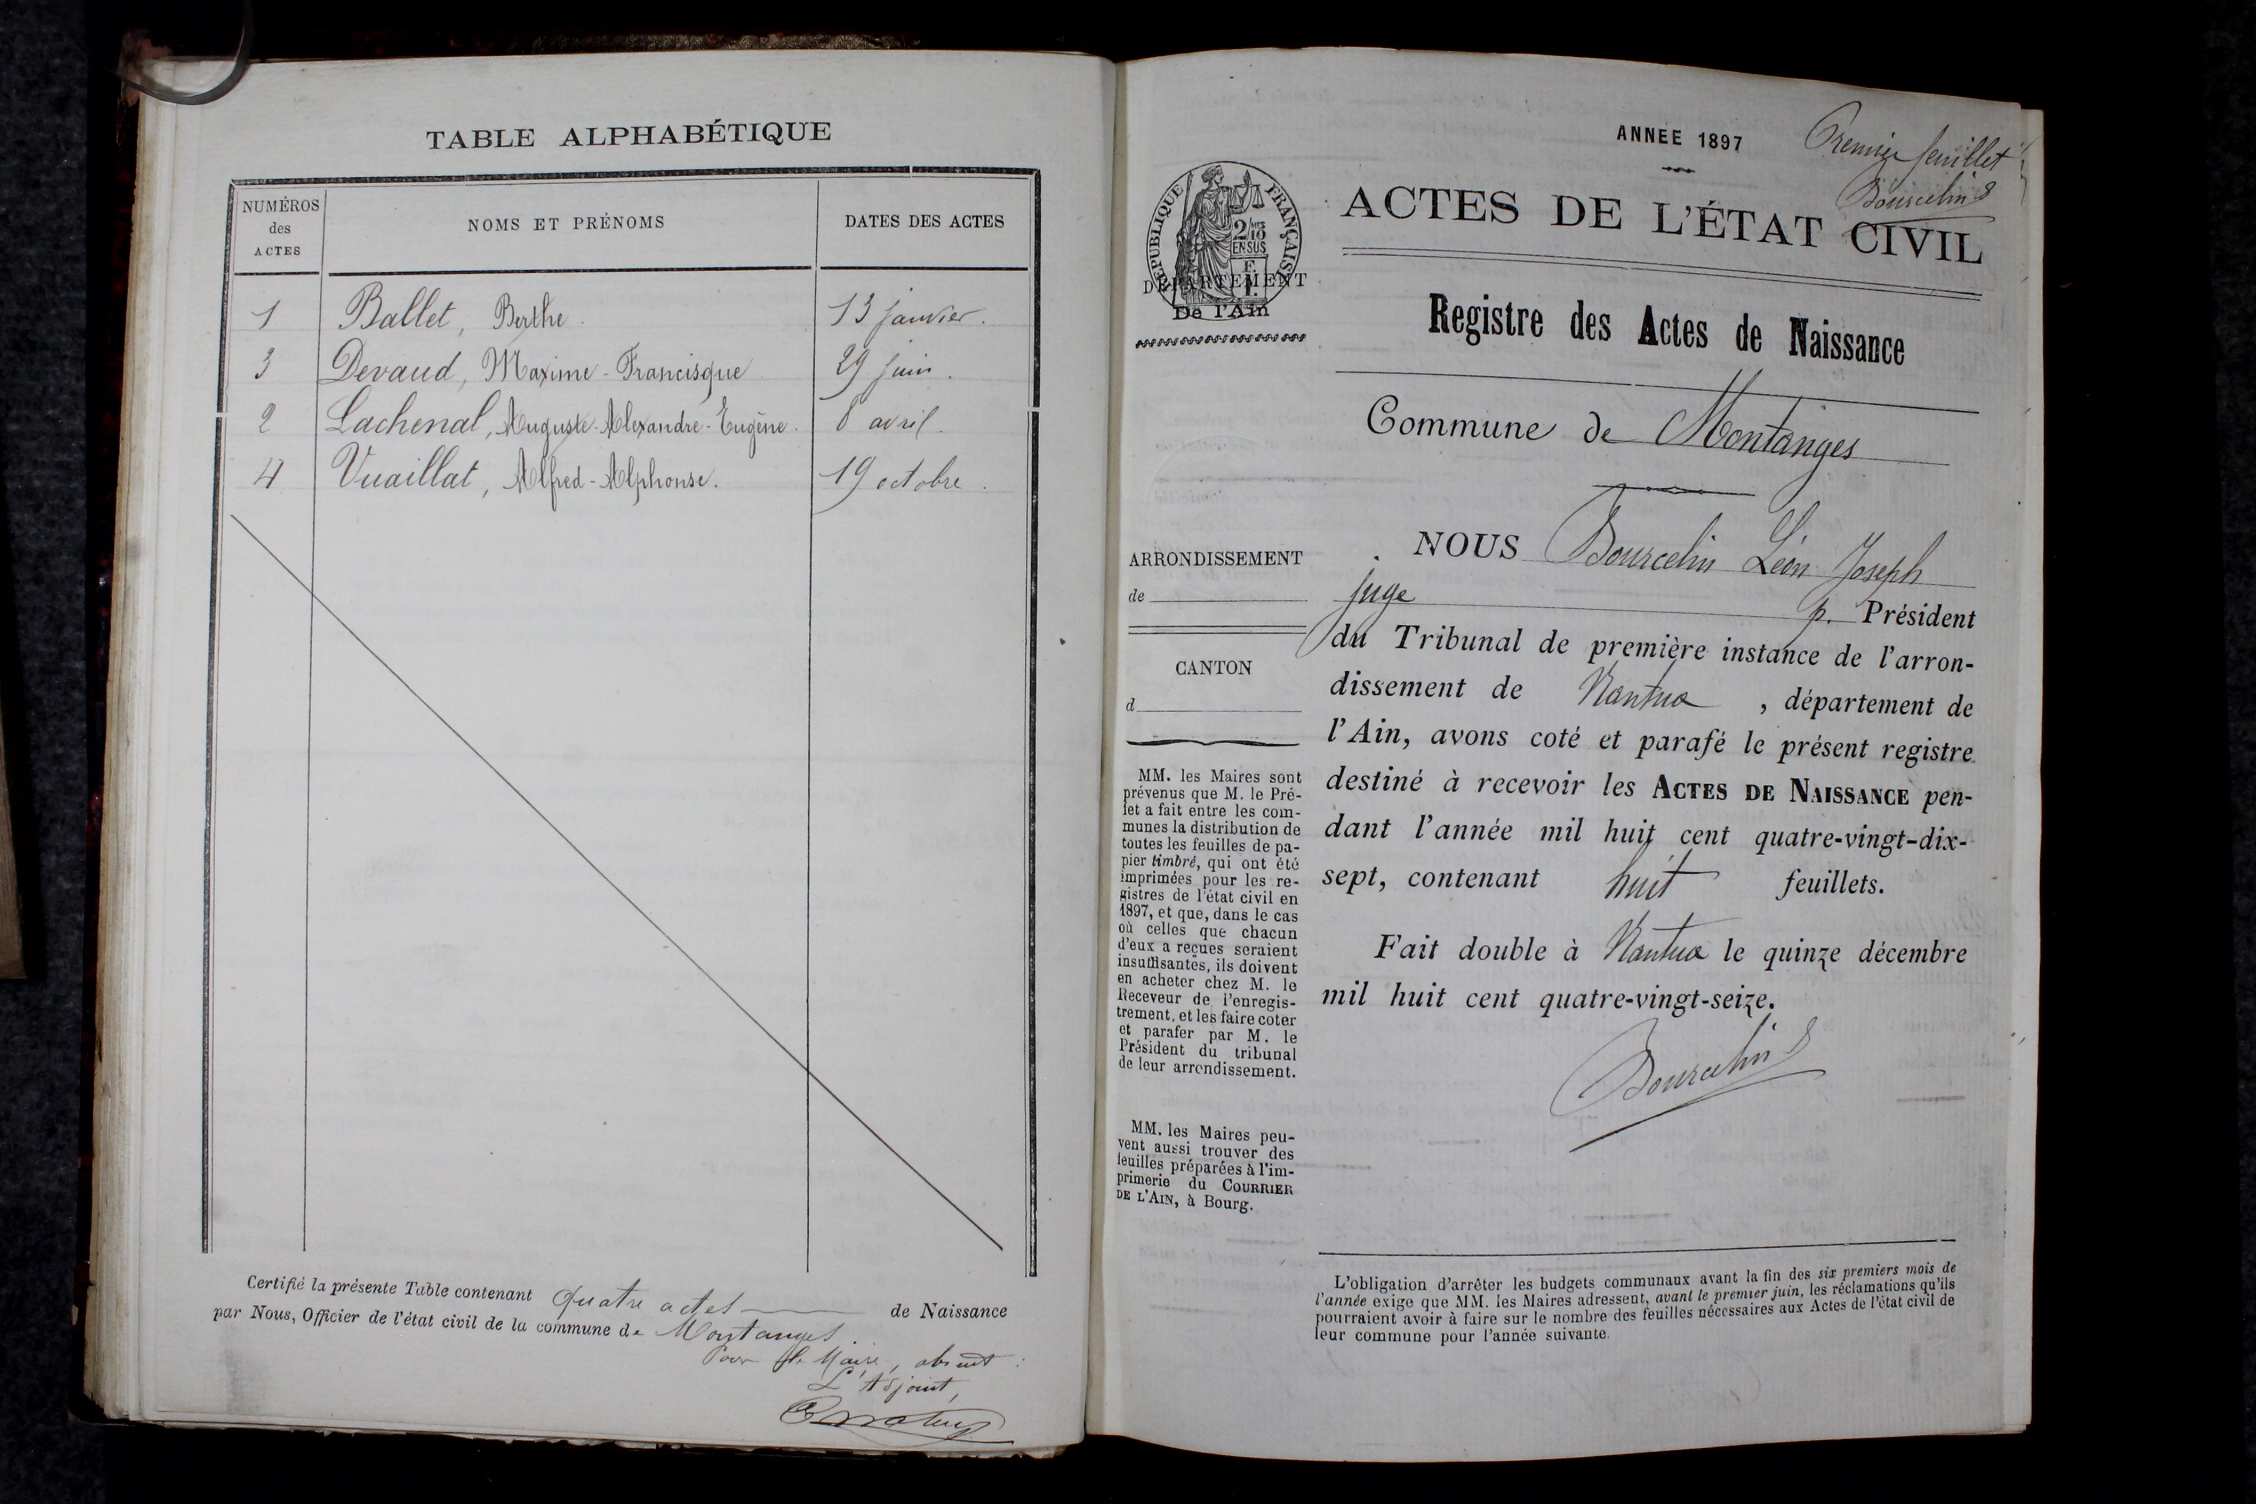 TABLE ALPHABÉTIQUE
NUMÉROS
des
ACTES
NOMS ET PRÉNOMS
DATES DES ACTES
1 Ballet, Berthe. 13 janvier.
3 Devaud, Maxime-Francisque 29 juin.
2 Lachenal, Auguste-Alexandre-Eugène. 8 avril.
4 Vuaillat, Alfred-Alphonse. 19 octobre.
Certifié la présente Table contenant quatre actes de Naissance
par Nous, Officier de l'état civil de la commune de Montanges.
Pour le Maire, absent :
L'Adjoint,
ANNÉE 1897
Premier feuillet
Bourcelin
RÉPUBLIQUE FRANÇAISE
2/10
EN SUS
DÉPARTEMENT
De l'Ain
ACTES DE L'ÉTAT CIVIL
Registre des Actes de Naissance
Commune de Montanges
ARRONDISSEMENT
de
CANTON
d
MM. les Maires sont
prévenus que M. le Pré-
fet a fait entre les com-
munes la distribution de
toutes les feuilles de pa-
pier timbré, qui ont été
imprimées pour les re-
gistres de l'état civil en
1897, et que, dans le cas
où celles que chacun
d'eux a reçues seraient
insuffisantes, ils doivent
en acheter chez M. le
Receveur de l'enregis-
trement, et les faire coter
et parafer par M. le
Président du tribunal
de leur arrondissement.
MM. les Maires peu-
vent aussi trouver des
feuilles préparées à l'im-
primerie du COURRIER
DE L'AIN, à Bourg.
NOUS Bourcelin Léon Joseph
juge p. Président
du Tribunal de première instance de l'arron-
dissement de Nantua, département de
l'Ain, avons coté et parafé le présent registre
destiné à recevoir les ACTES DE NAISSANCE pen-
dant l'année mil huit cent quatre-vingt-dix-
sept, contenant huit feuillets.
Fait double à Nantua le quinze décembre
mil huit cent quatre-vingt-seize.
Bourcelin
L'obligation d'arrêter les budgets communaux avant la fin des six premiers mois de
l'année exige que MM. les Maires adressent, avant le premier juin, les réclamations qu'ils
pourraient avoir à faire sur le nombre des feuilles nécessaires aux Actes de l'état civil de
leur commune pour l'année suivante.